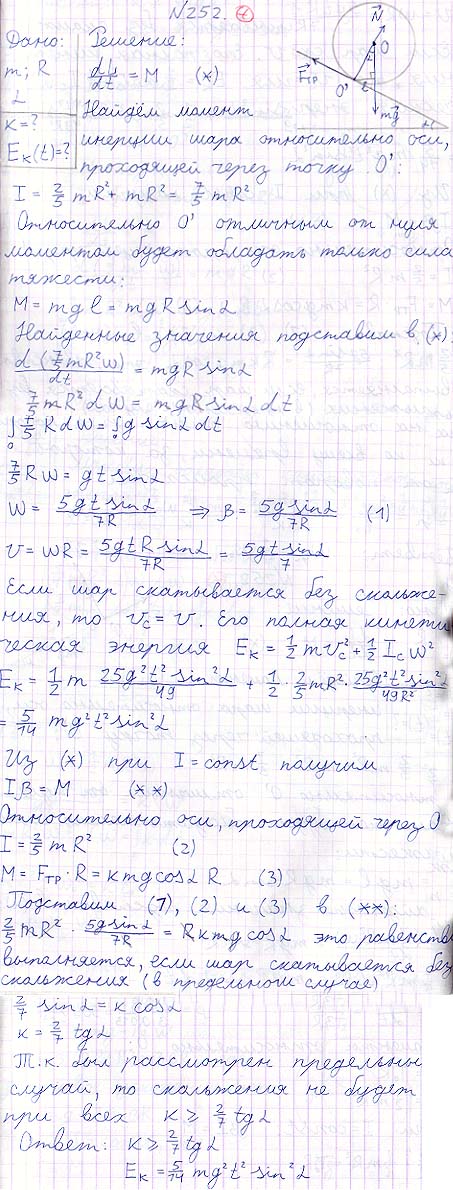 N252. 4
Дано: Решение:
m; R
α
k = ?
Eк(t) = ?
dL/dt = M (*)
Найдём момент
инерции шара относительно оси,
проходящей через точку O':
I = 2/5 mR² + mR² = 7/5 mR²
Относительно O' отличным от нуля
моментом будет обладать только сила
тяжести:
M = mgl = mgR sinα
Найденные значения подставим в (*):
d(7/5 mR²ω)/dt = mgR sinα
7/5 mR² dω = mgR sinα dt
∫₀ 7/5 R dω = ∫₀ g sinα dt
7/5 Rω = gt sinα
ω = 5gt sinα/7R ⇒ β = 5g sinα/7R (1)
v = ωR = 5gtR sinα/7R = 5gt sinα/7
Если шар скатывается без скольже-
ния, то vc = v. Его полная кинети
ческая энергия Eк = 1/2 mvc² + 1/2 Icω²
Eк = 1/2 m 25g²t² sin²α/49 + 1/2 · 2/5 mR² · 25g²t² sin²α/49R²
= 5/14 mg²t² sin²α
Из (*) при I = const получим
Iβ = M (**)
Относительно оси, проходящей через O
I = 2/5 mR² (2)
M = Fтр · R = kmg cosα R (3)
Подставим (1), (2) и (3) в (**):
2/5 mR² · 5g sinα/7R = Rkmg cosα это равенств
выполняется, если шар скатывается без
скольжения (в предельном случае)
2/7 sinα = k cosα
k = 2/7 tgα
Т.к. был рассмотрен предельны
случай, то скольжения не будет
при всех k ≥ 2/7 tgα
Ответ: k ≥ 2/7 tgα
Eк = 5/14 mg²t² sin²α
N
O
Fтр
O'
l
mg
α